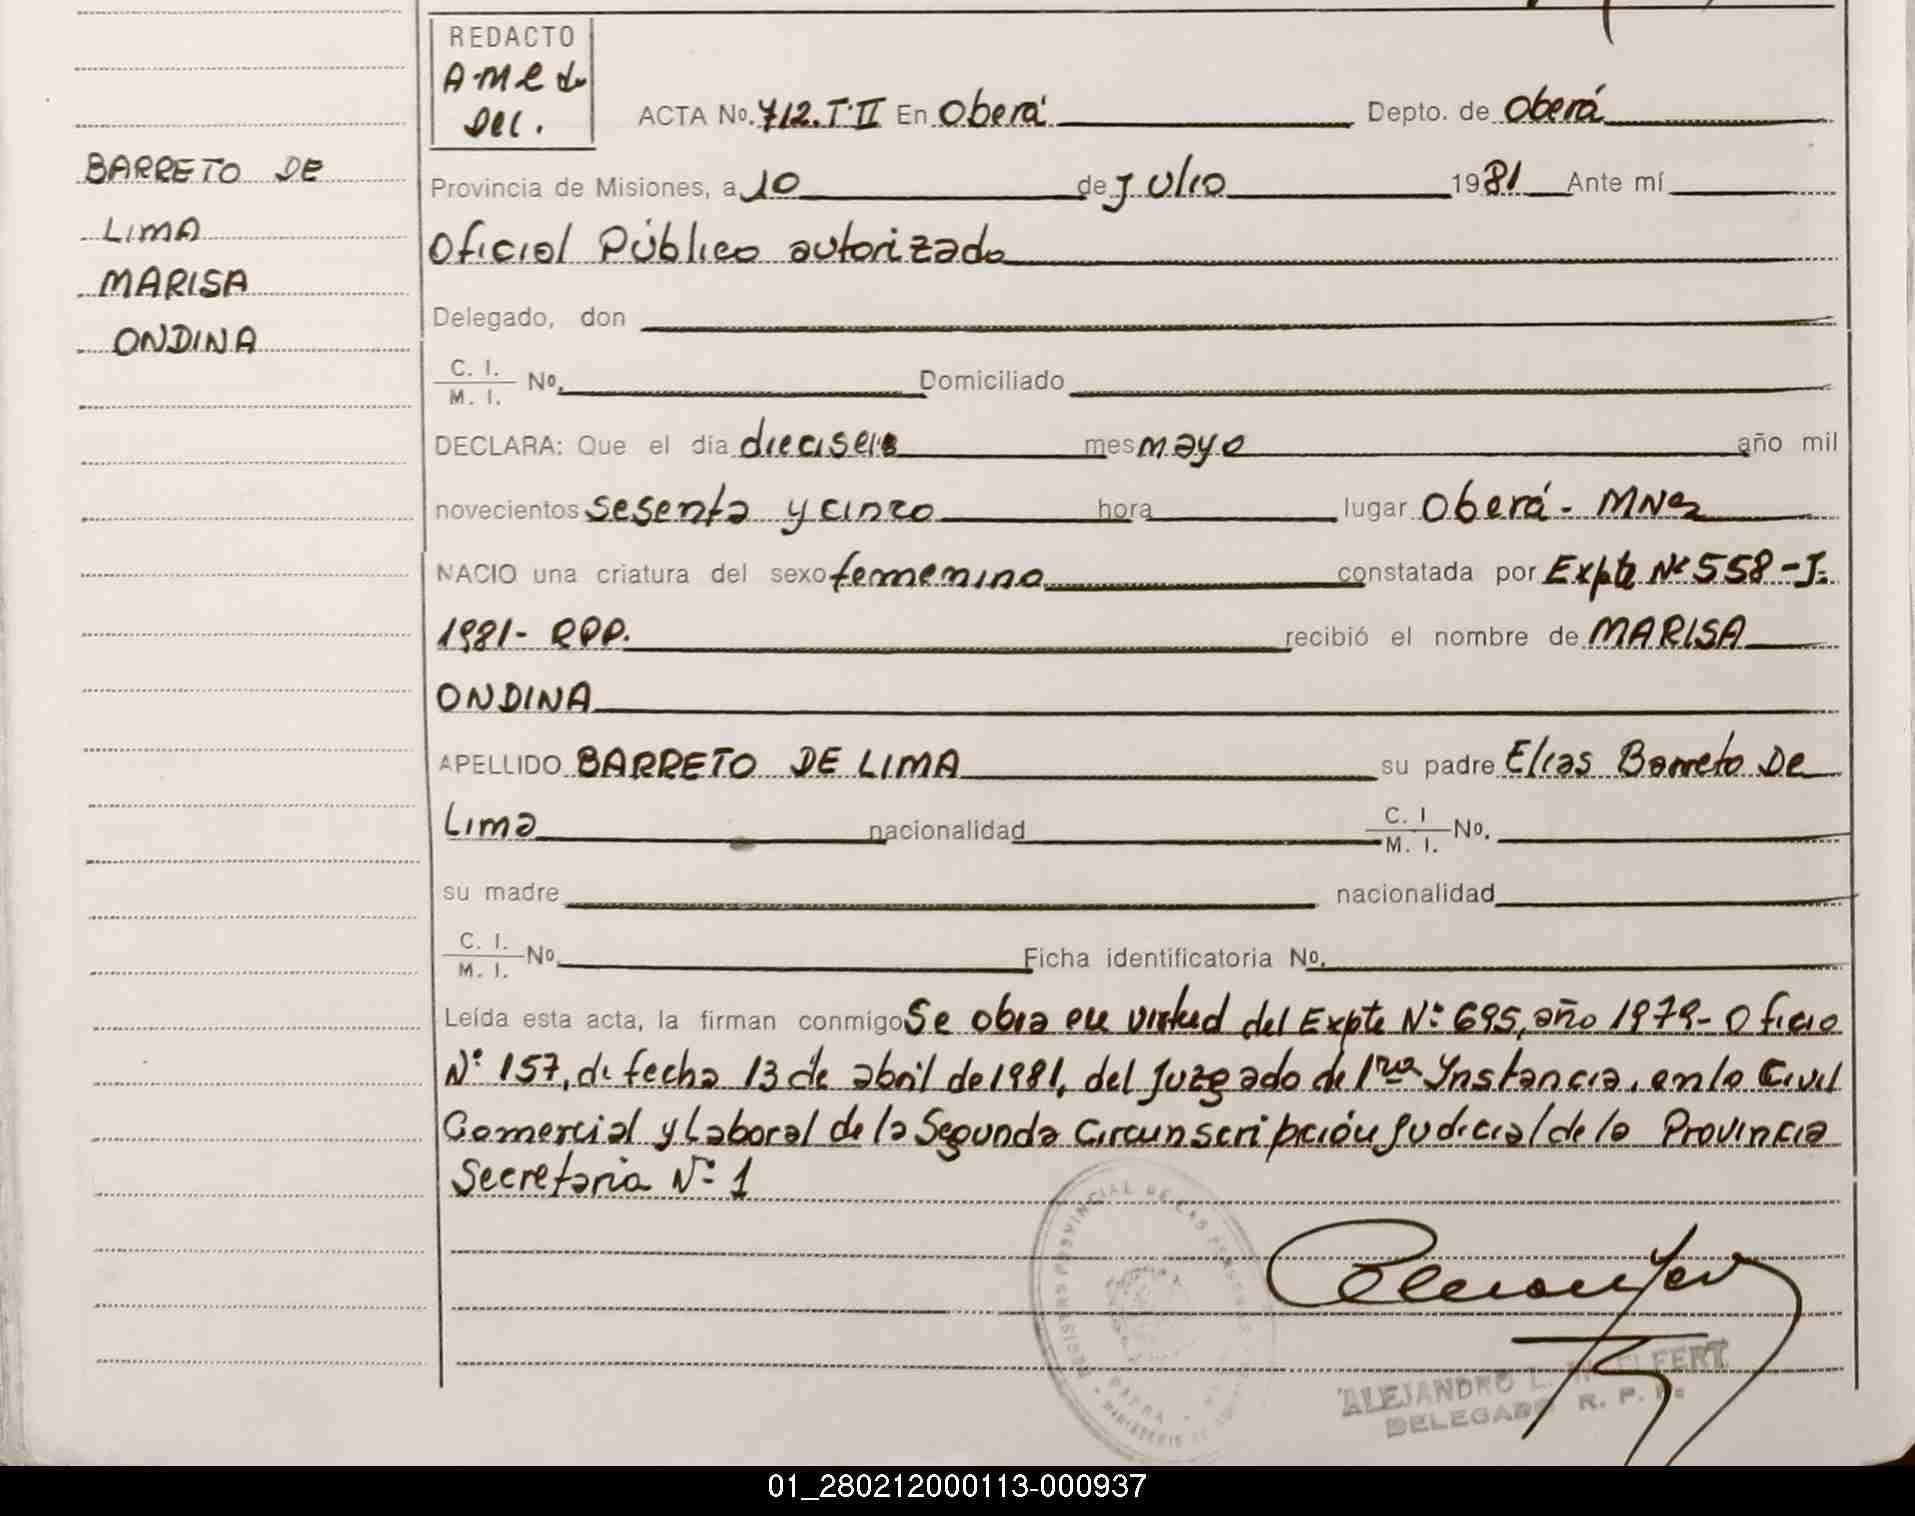 REDACTO
BARRETO DE
LIMA
MARISA
ONDINA
ACTA No. 712. T. II En Oberá Depto. de Oberá
Provincia de Misiones, a 10 de Julio 1981 Ante mí
Oficial Público autorizado
Delegado, don
C. I. M. I. No. Domiciliado
DECLARA: Que el dia dieciseis mes mayo año mil
novecientos sesenta y cinco hora lugar Oberá - MNes
NACIO una criatura del sexo femenino constatada por Expte Nº 558-J-
1981- RPP. recibió el nombre de MARISA
ONDINA
APELLIDO BARRETO DE LIMA su padre Elias Barreto De
Lima nacionalidad C. I M. I. No.
su madre nacionalidad
C. I. M. I. No. Ficha identificatoria No.
Leída esta acta, la firman conmigo Se obra en virtud del Expte Nº 695, año 1979- Oficio
Nº 157, de fecha 13 de abril de 1981, del Juzgado de 1ra Ynstancia, en lo Civil
Comercial y Laboral de la Segunda Circunscripción Judicial de la Provincia
Secretaria Nº 1
ALEJANDRO L.
DELEGADO R. P. P.
01_280212000113-000937